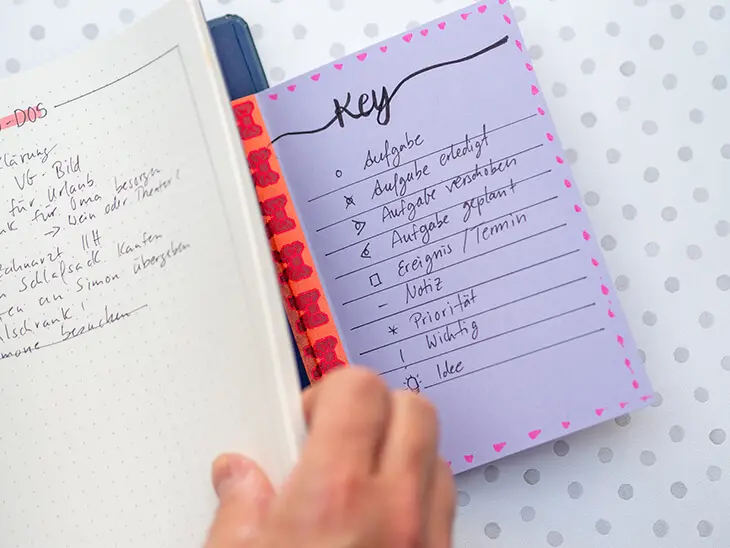 -DOS
klärung
VG-Bild
für Urlaub
für Oma besorgen
→ Wein oder Theater?
Zahnarzt !!!
Schlafsack kaufen
an Simon übergeben
schrank!
besuchen
Key
o Aufgabe
x Aufgabe erledigt
> Aufgabe verschoben
< Aufgabe geplant
□ Ereignis/Termin
– Notiz
* Priorität
! Wichtig
Idee